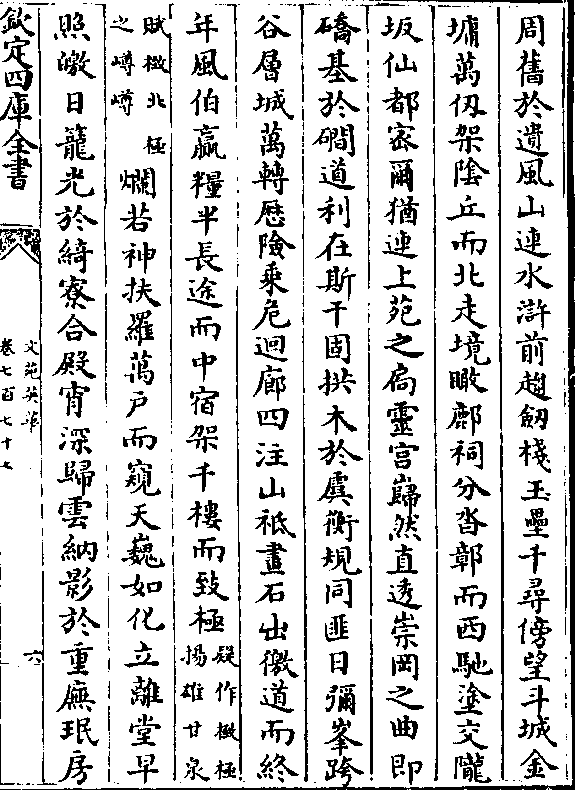 周舊於遺風山連水滸前趨劔棧玉壘千尋傍望斗城金
墉萬仭架陰丘而北走境瞰鄜祠分沓鄣而西馳塗交隴
坂仙都宻爾猶連上苑之扄靈宫巋然直透崇岡之曲即
礄基於磵道利在斯干固拱木於虞衡規同匪日彌峯跨
谷層城萬轉歴險乘危迴廊四注山祗畫石出徼道而終
年風伯贏糧半長途而中宿架千樓而致極疑作橄極揚雄甘泉
賦橄北極之嶟嶟爛若神扶羅萬戸而窺天巍如化立離堂早
照皦日籠光於綺寮合殿宵深歸雲納影於重廡珉房
欽定四庫全書
文苑英華
卷七百七十七
六